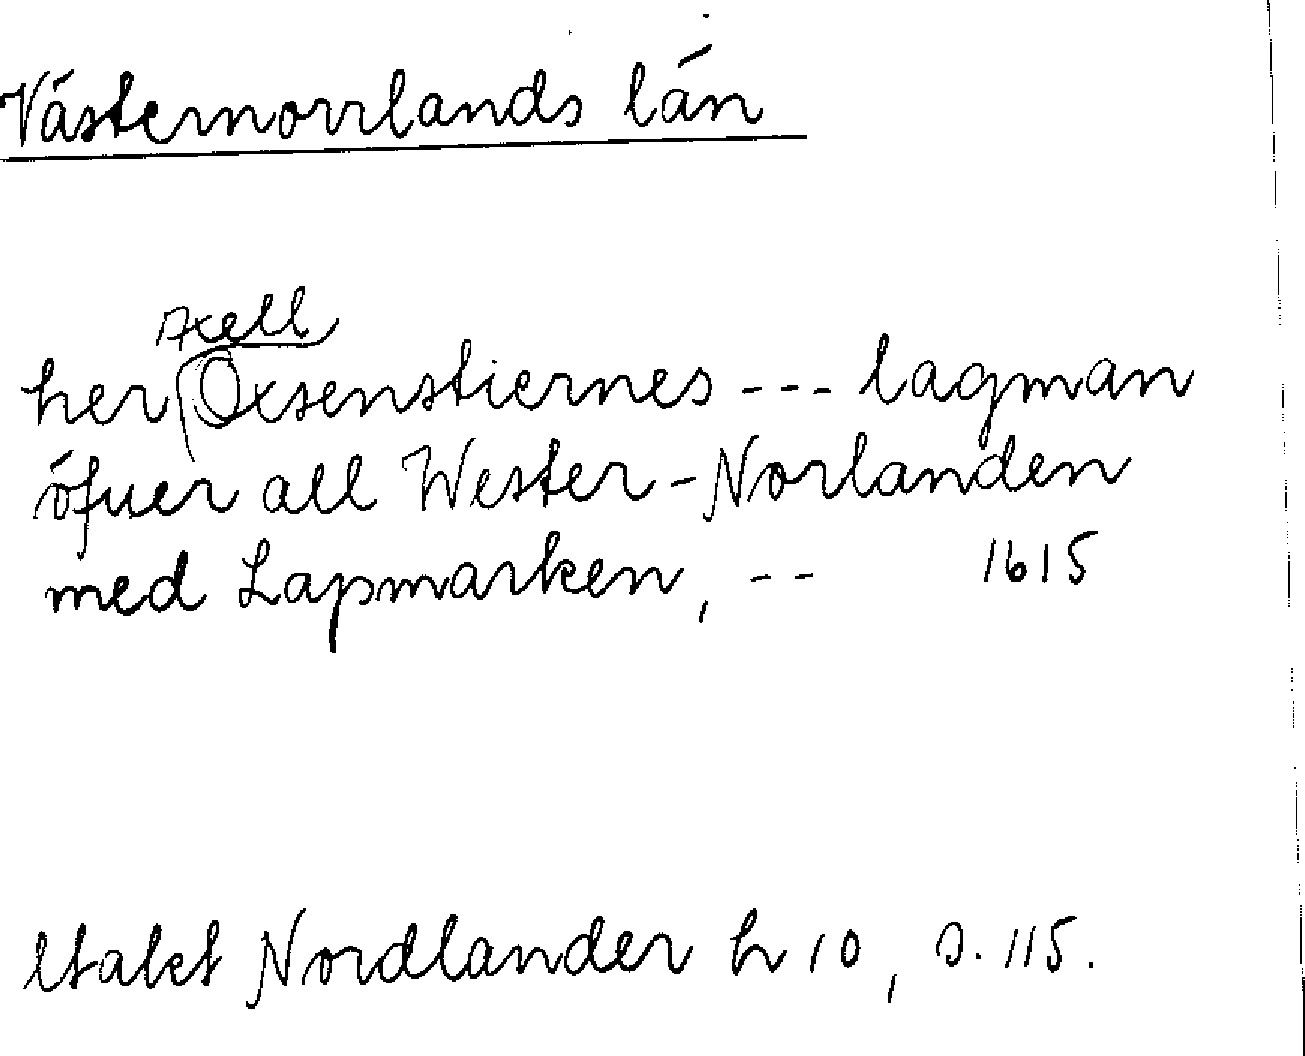 Västernorrlands län
Axell
her Oxsenstiernes --- lagman
öfuer all Wester-Norlanden
med Lapmarken, -- 1615
Nordlander h 10, s. 115.